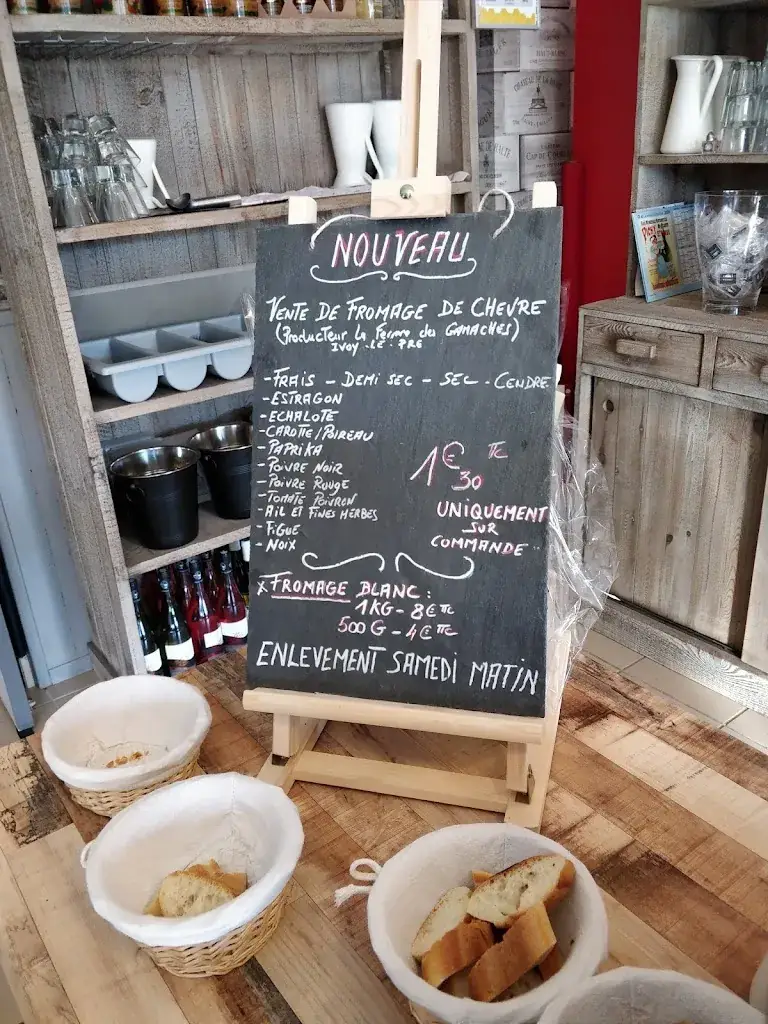 NOUVEAU
VENTE DE FROMAGE DE CHEVRE
(Producteur La Ferme des GAMACHES)
IVOY-LE-PRE
-FRAIS - DEMI SEC - SEC - CENDRE
-ESTRAGON
-ECHALOTE
-CAROTTE/POIREAU
-PAPRIKA
-POIVRE NOIR
-POIVRE ROUGE
-TOMATE POIVRON
-AIL ET FINES HERBES
-FIGUE
-NOIX
1€30 TTC
UNIQUEMENT
SUR
COMMANDE
x FROMAGE BLANC :
1KG - 8€ TTC
500G - 4€ TTC
ENLEVEMENT SAMEDI MATIN